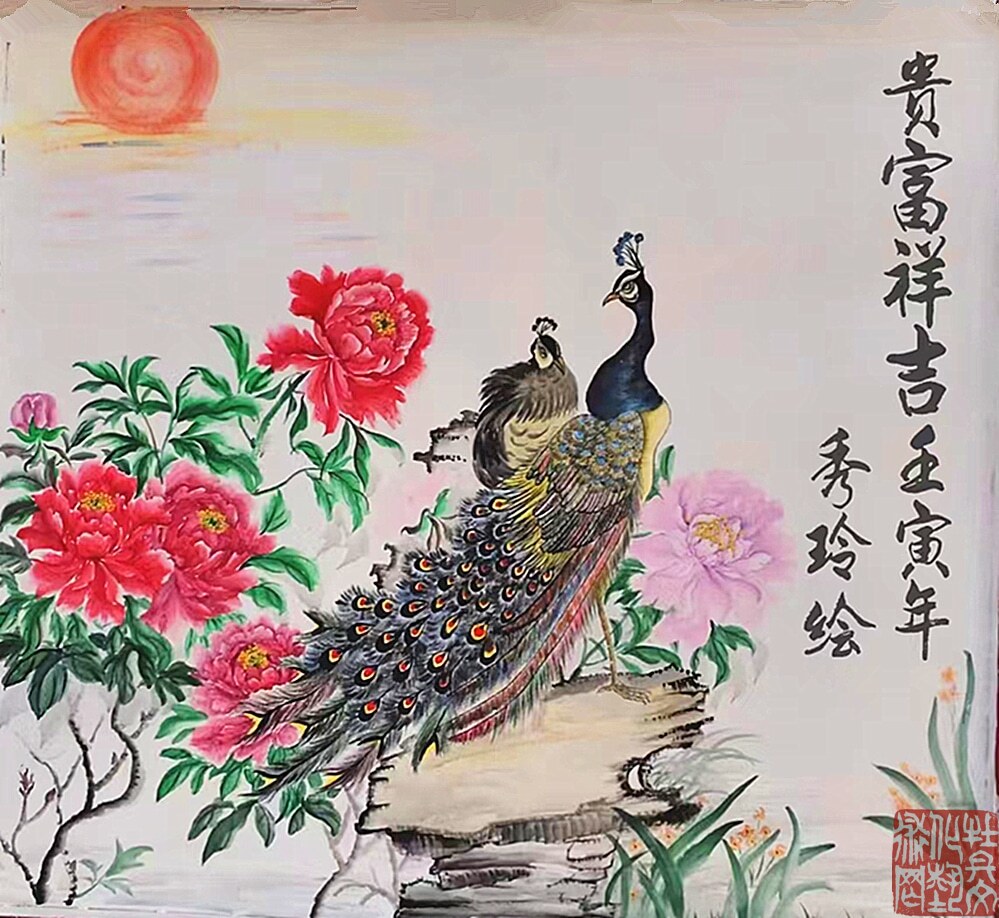 贵富祥吉壬寅年
秀玲绘